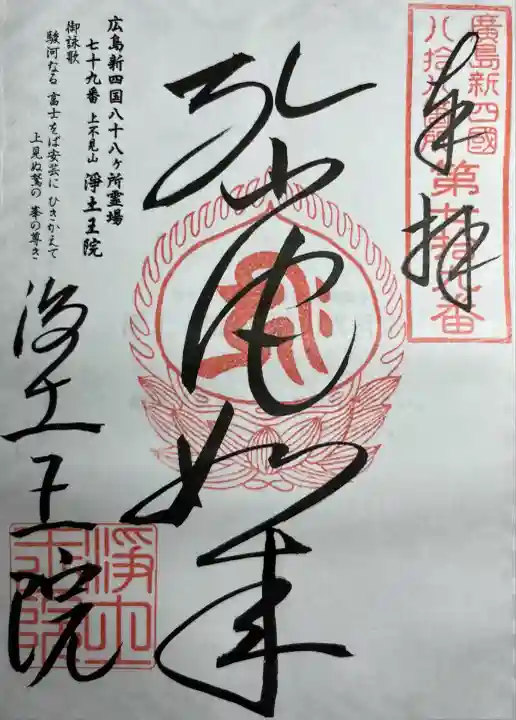 廣島新四國
奉拝
如来
広島新四国八十八ヶ所霊場
七十九番 上不見山 淨土王院
御詠歌
駿河なる 富士をば安芸に ひきかえて
上見ぬ鷲の 峯の尊き
浄土王院
淨土
王院